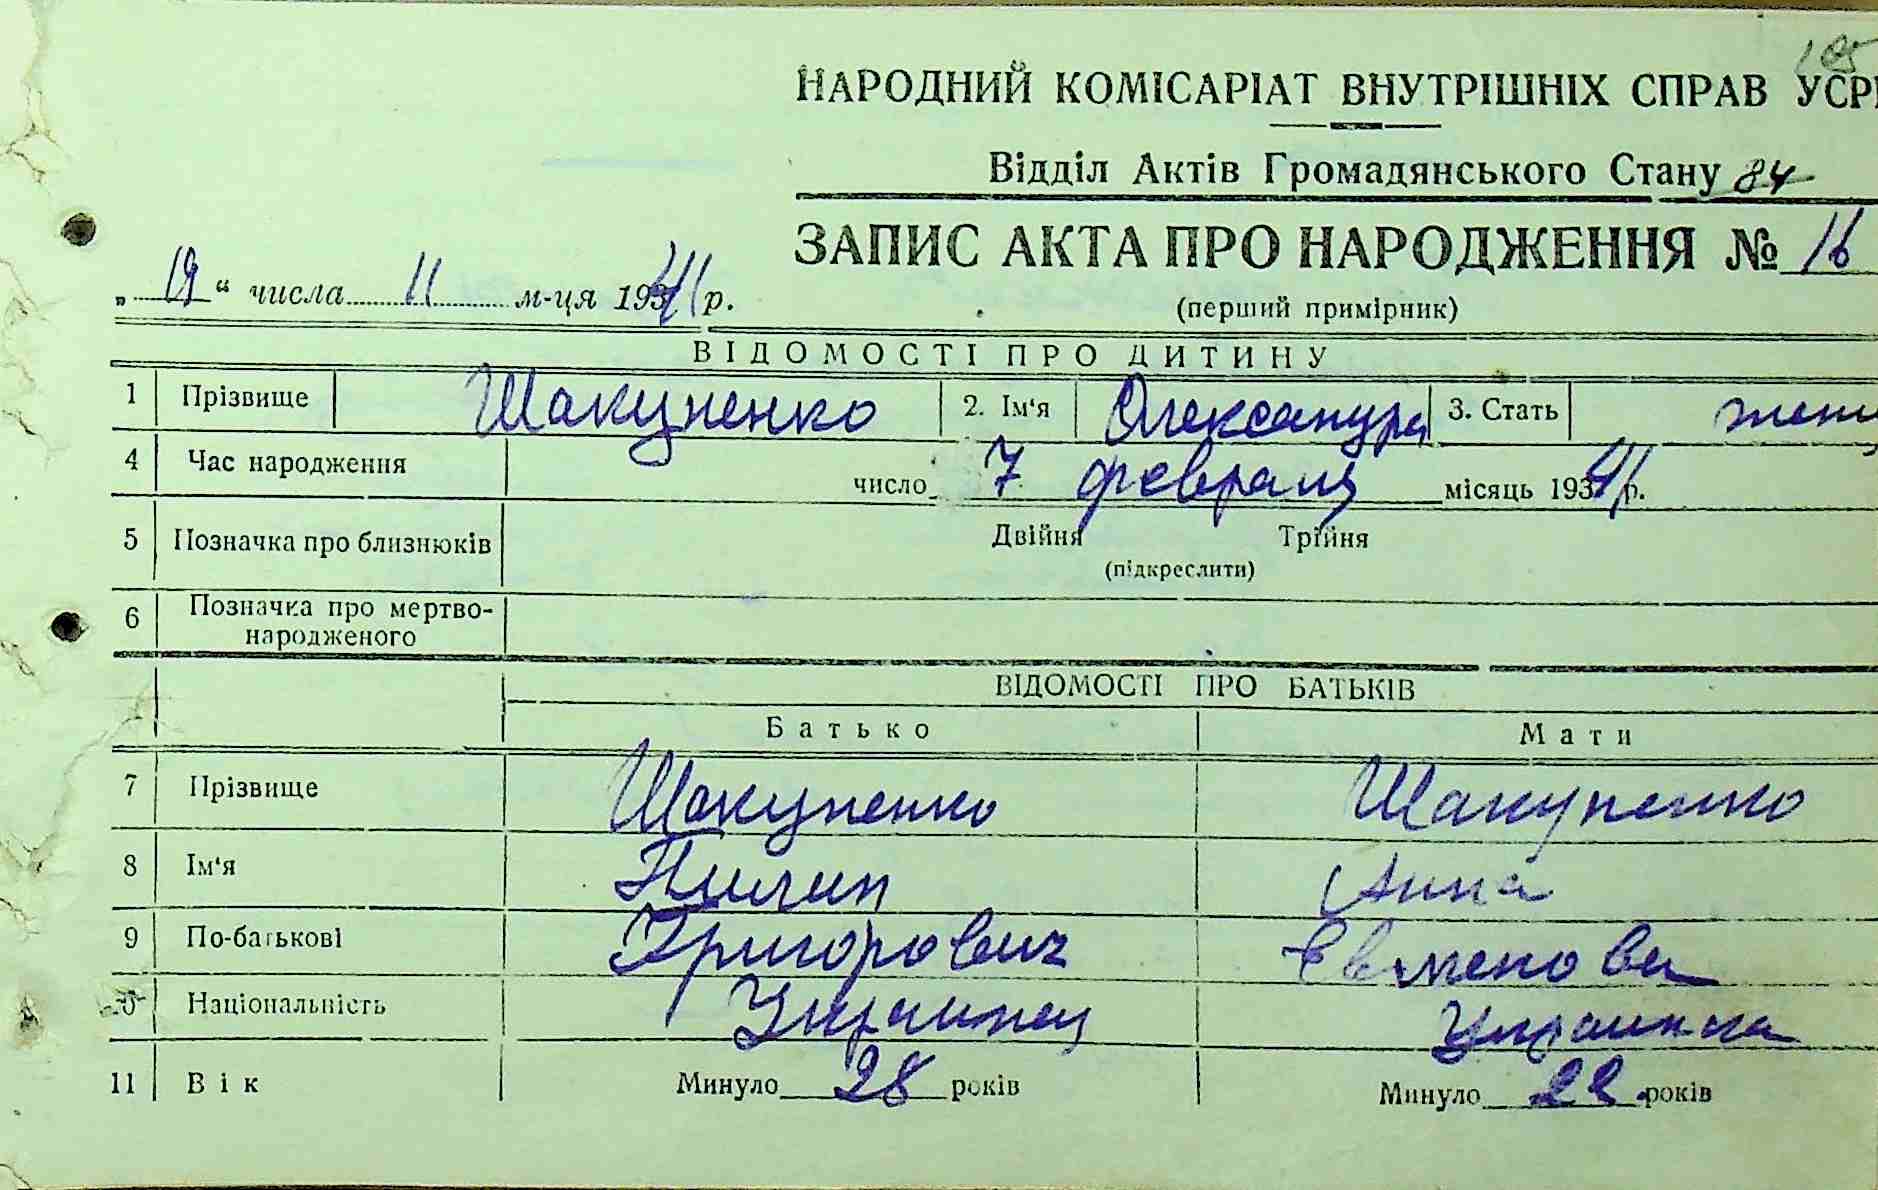 105
НАРОДНИЙ КОМІСАРІАТ ВНУТРІШНІХ СПРАВ УСРР
Відділ Актів Громадянського Стану 84
ЗАПИС АКТА ПРО НАРОДЖЕННЯ № 16
„ 19 “ числа 11 м-ця 1941 р.
(перший примірник)
ВІДОМОСТІ ПРО ДИТИНУ
1 Прізвище Шакуненко 2. Ім‘я Олександра 3. Стать жен
4 Час народження число 7 февраля місяць 1941 р.
5 Позначка про близнюків Двійня Трійня
(підкреслити)
6 Позначка про мертво-
народженого
ВІДОМОСТІ ПРО БАТЬКІВ
Батько Мати
7 Прізвище Шакуненко Шакуненко
8 Ім‘я Пилип Анна
9 По-батькові Григорович Євменова
10 Національність Украинец Украинка
11 Вік Минуло 28 років Минуло 22 років